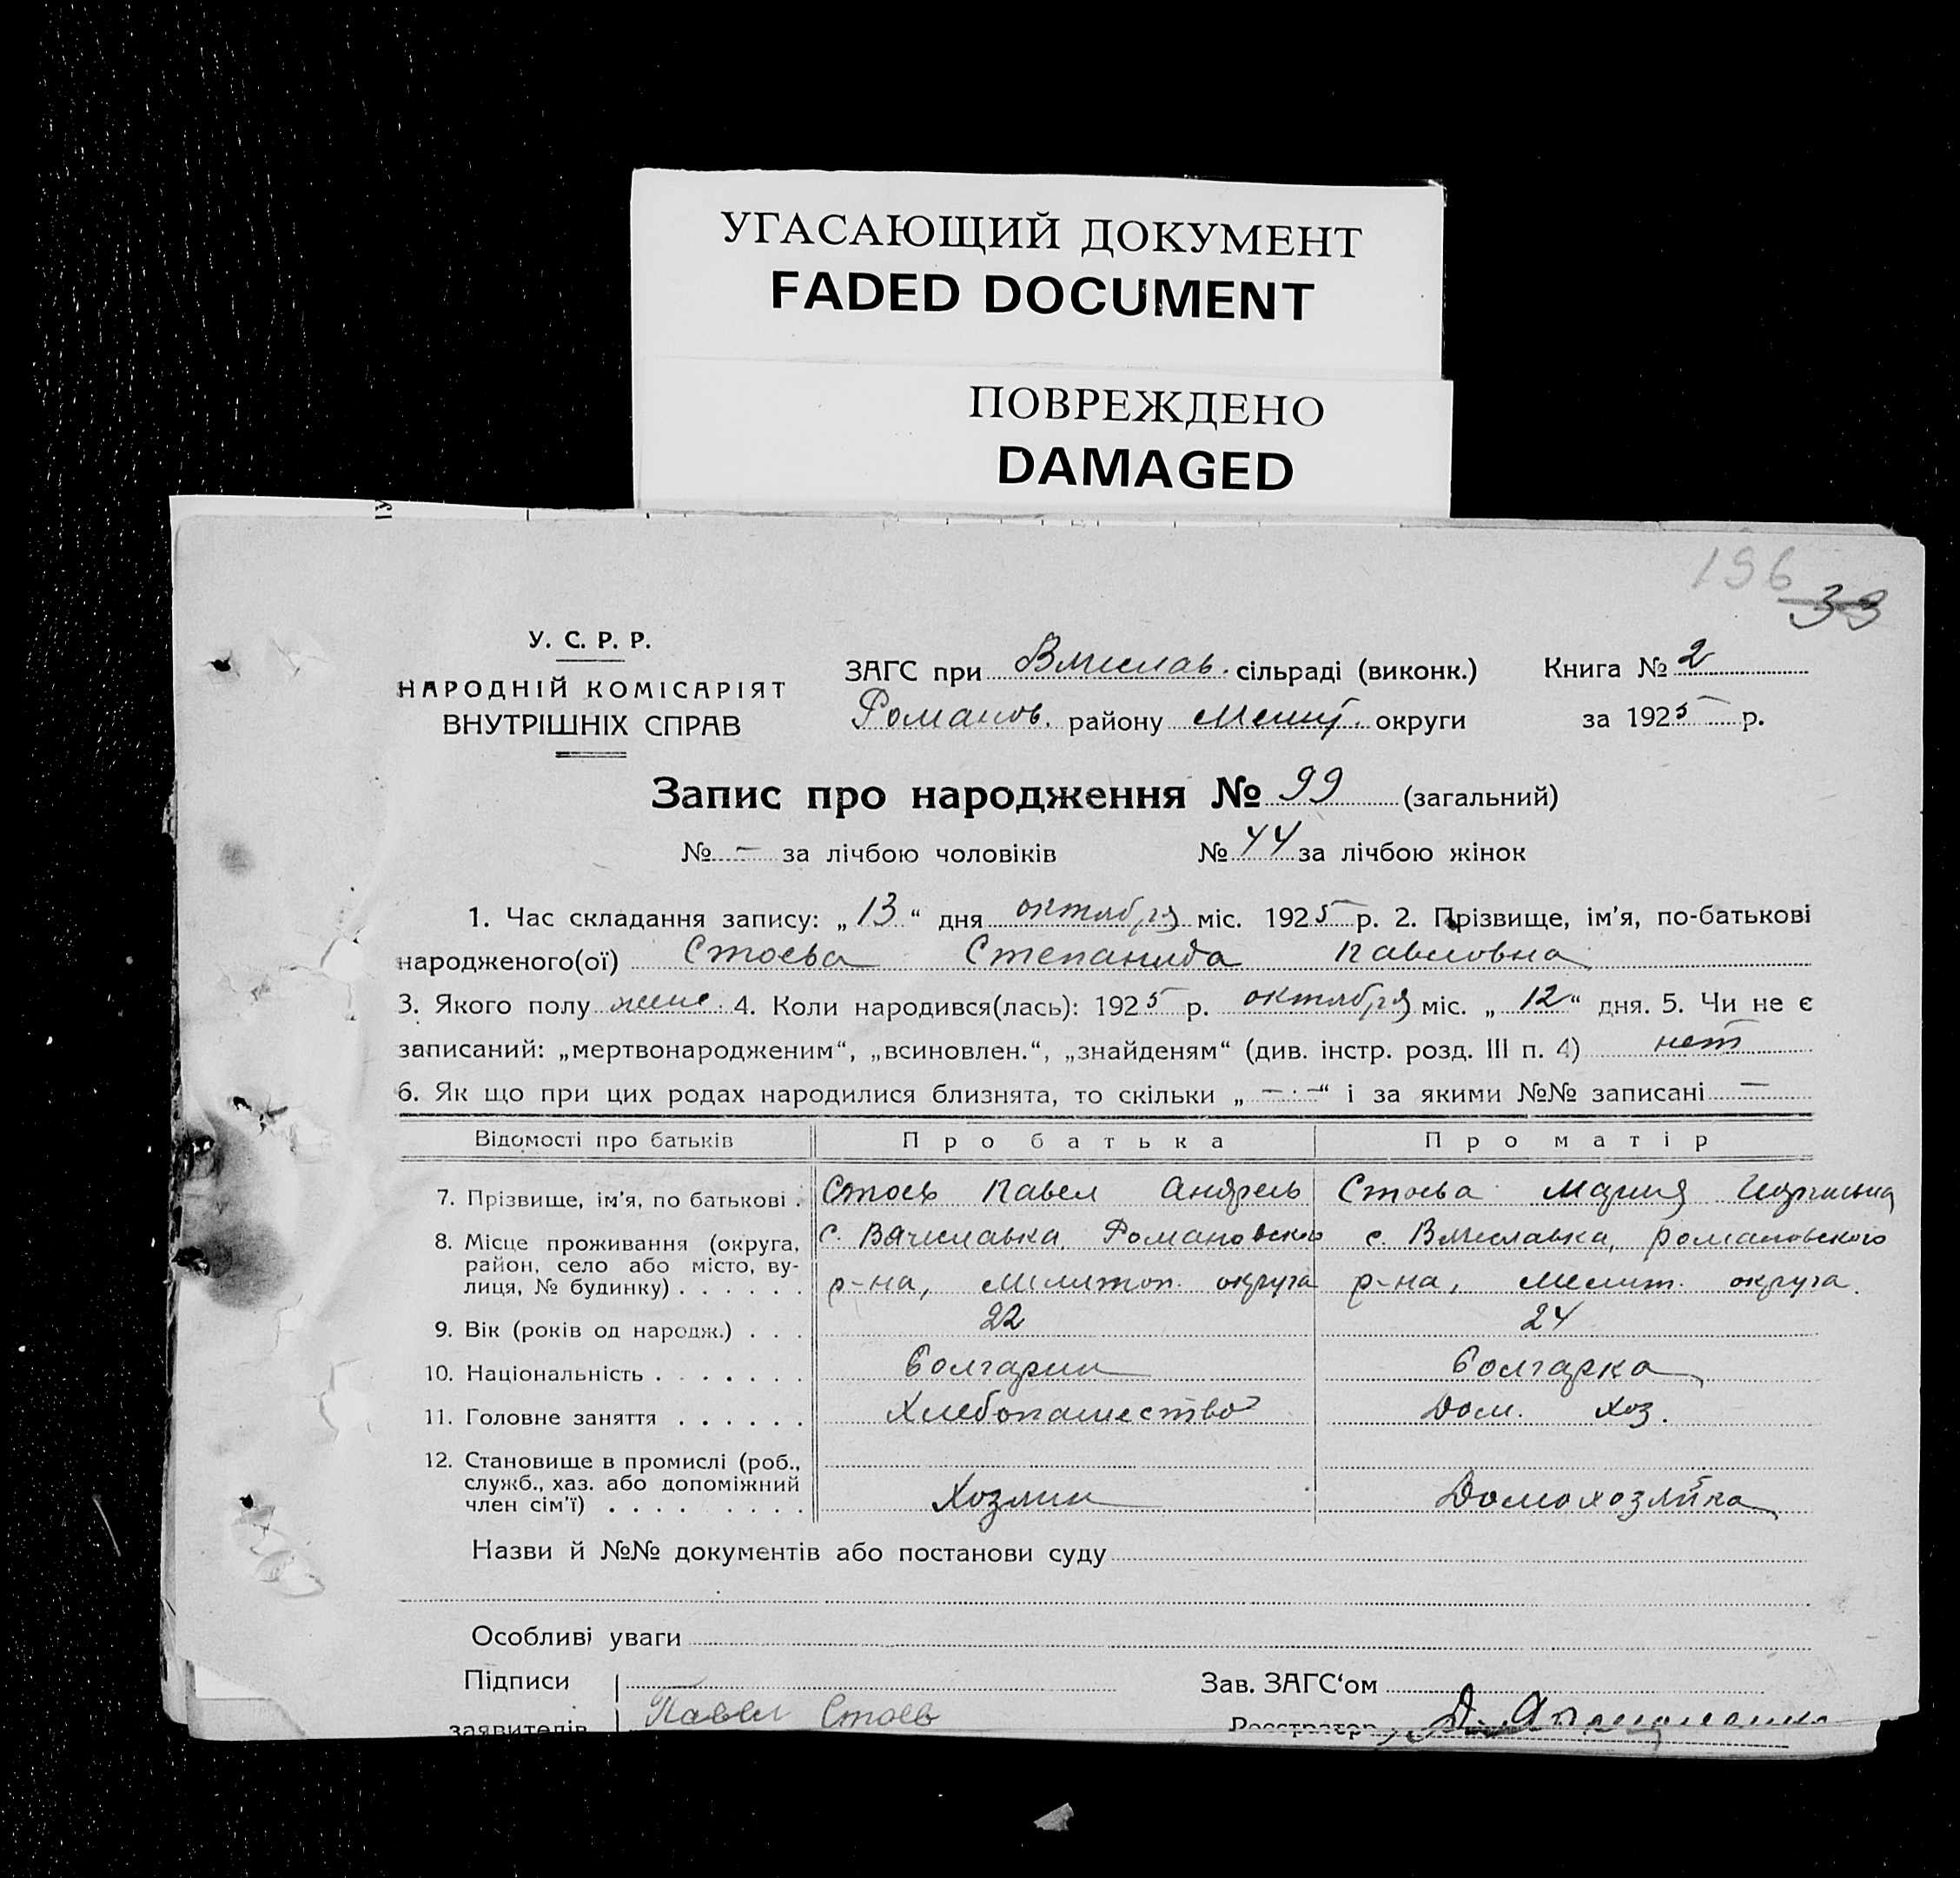 УГАСАЮЩИЙ ДОКУМЕНТ
FADED DOCUMENT
ПОВРЕЖДЕНО
DAMAGED
196
33
У. С. Р. Р.
НАРОДНІЙ КОМІСАРІЯТ
ВНУТРІШНІХ СПРАВ
ЗАГС при Вячеслав. сільраді (виконк.) Книга № 2
Романов. району округи за 1925 р.
Запис про народження № 99 (загальний)
№ — за лічбою чоловіків № 44 за лічбою жінок
1. Час складання запису: „13“ дня октября міс. 1925 р. 2. Прізвище, ім'я, по-батькові
народженого(ої) Стоева Степанида Павловна
3. Якого полу женс. 4. Коли народився(лась): 1925 р. октября міс. „12“ дня. 5. Чи не є
записаний: „мертвонародженим“, „всиновлен.“, „знайденям“ (див. інстр. розд. III п. 4) нет
6. Як що при цих родах народилися близнята, то скільки „ — · — “ і за якими №№ записані —
Відомості про батьків Про батька Про матір
7. Прізвище, ім'я, по батькові . Стоев Павел Андреев Стоева Мария
8. Місце проживання (округа, с. Вячеславка, Романовского с. Вячеславка, Романовского
район, село або місто, ву-
лиця, № будинку) . . . . . . р-на, Мелитоп. округа р-на, Мелит. округа.
9. Вік (років од народж.) . . . 22 24
10. Національність . . . . . . . Болгарин Болгарка
11. Головне заняття . . . . . . Хлебопашество Дом. хоз.
12. Становище в промислі (роб.,
служб., хаз. або допоміжний
член сім'ї) . . . . . . . . . Хозяин Домохозяйка
Назви й №№ документів або постанови суду
Особливі уваги
Підписи Зав. ЗАГС'ом
заявителів Павел Стоев Реєстратор